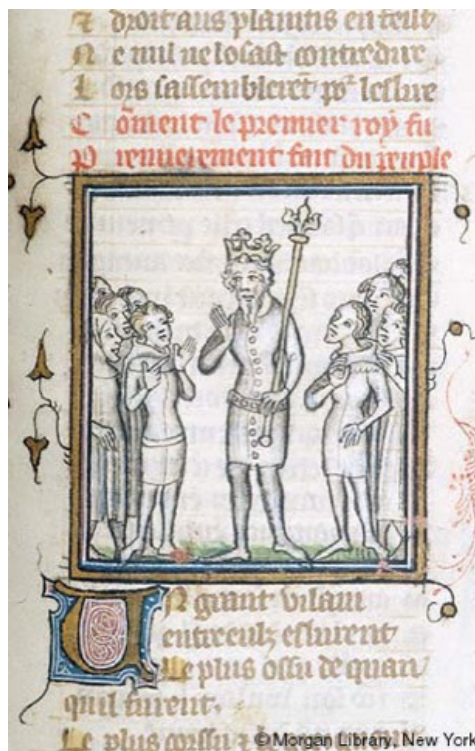 Et droit aus plaintis en feist
Ne nul ne losast contredire
Lors sassemblerent por leslire
Coment le premier roy fu
Premierement fait du peuple
Un grant vilain
entreulz eslurent
Le plus ossu de quan
quil furent.
Le plus corssu
©Morgan Library, New York